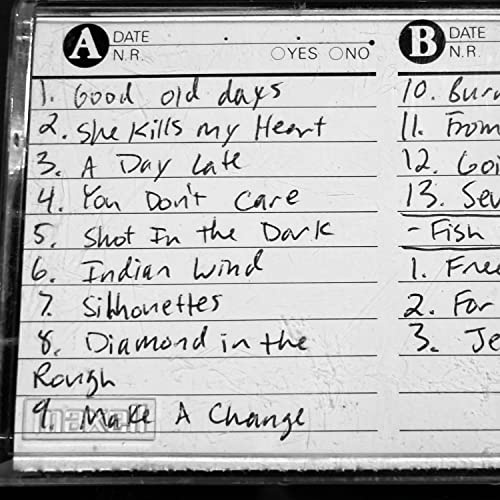 A DATE
N.R. YES NO
1. Good old days
2. She Kills my Heart
3. A Day Late
4. You Don't Care
5. Shot In the Dark
6. Indian Wind
7. Silhouettes
8. Diamond in the
Rough
9. Make A Change
maxell
B DATE
N.R.
10. Burn
11. From
12. Goi
13. Sev
- Fish
1. Free
2. For
3. Je